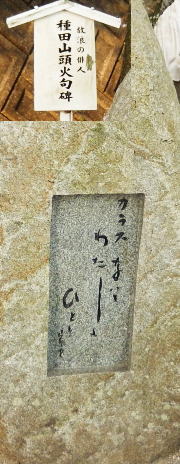 放浪の俳人
種田山頭火句碑
カラスないて
わたしも
ひとり
山頭火